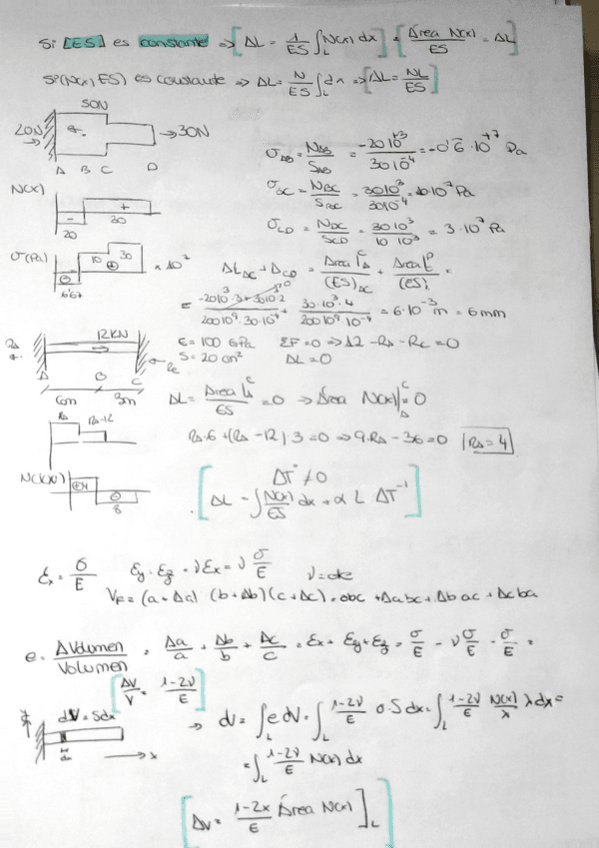 Si [ES] es constante => [ΔL = 1/ES ∫_L N(x) dx] = [Área N(x)/ES = ΔL]
Si (N(x), ES) es constante => ΔL = N/ES ∫_L dx => [ΔL = NL/ES]
50N
20N → 30N
A B C D
N(x)
- + 30
20
σ(Pa) 10 30 × 10⁷
6'67
σ_AB = N_AB/S_AB = -20·10³/30·10⁻⁴ = -0'6·10⁺⁷ Pa
σ_BC = N_BC/S_BC = 30·10³/30·10⁻⁴ = 10·10⁷ Pa
σ_CD = N_DC/S_CD = 30·10³/10·10³ = 3·10⁷ Pa
ΔL_AC + Δ_CD = Área/(ES)_AC + Área/(ES) =
= -20·10³·3+30·10³·2/200·10⁹·30·10⁻⁴ + 30·10³·4/200·10⁹·10⁻⁴ = 6·10⁻³ m = 6mm
12KN
E = 100 GPa ΣF=0 => 12 - R_A - R_C = 0
S = 20 cm² ΔL = 0
A B C
6m 3m
ΔL = Área|_A^C/ES = 0 → Área N(x)|_A^C = 0
R_A R_A-12
R_A·6 + (R_A - 12) 3 = 0 => 9·R_A - 36 = 0 |R_A = 4|
N(KN) +4
8
ΔT ≠ 0
[ΔL = ∫ N(x)/ES dx + α L ΔT]
ε_x = σ/E ε_y = ε_z = ν ε_x = ν σ/E
V_F = (a + Δa) (b + Δb) (c + Δc) = abc + Δabc + Δb ac + Δcba
e = ΔVolumen/Volumen = Δa/a + Δb/b + Δc/c = ε_x + ε_y + ε_z = σ/E - ν σ/E - σ/E =
[ΔV/V = 1-2ν/E]
dV = Sdx
dx → x
→ dV = ∫_L e dV = ∫_L 1-2ν/E σ·S dx = ∫_L 1-2ν/E N(x)/λ λ dx =
= ∫_L 1-2ν/E N(x) dx
[ΔV = 1-2x/E Área N(x)]_L